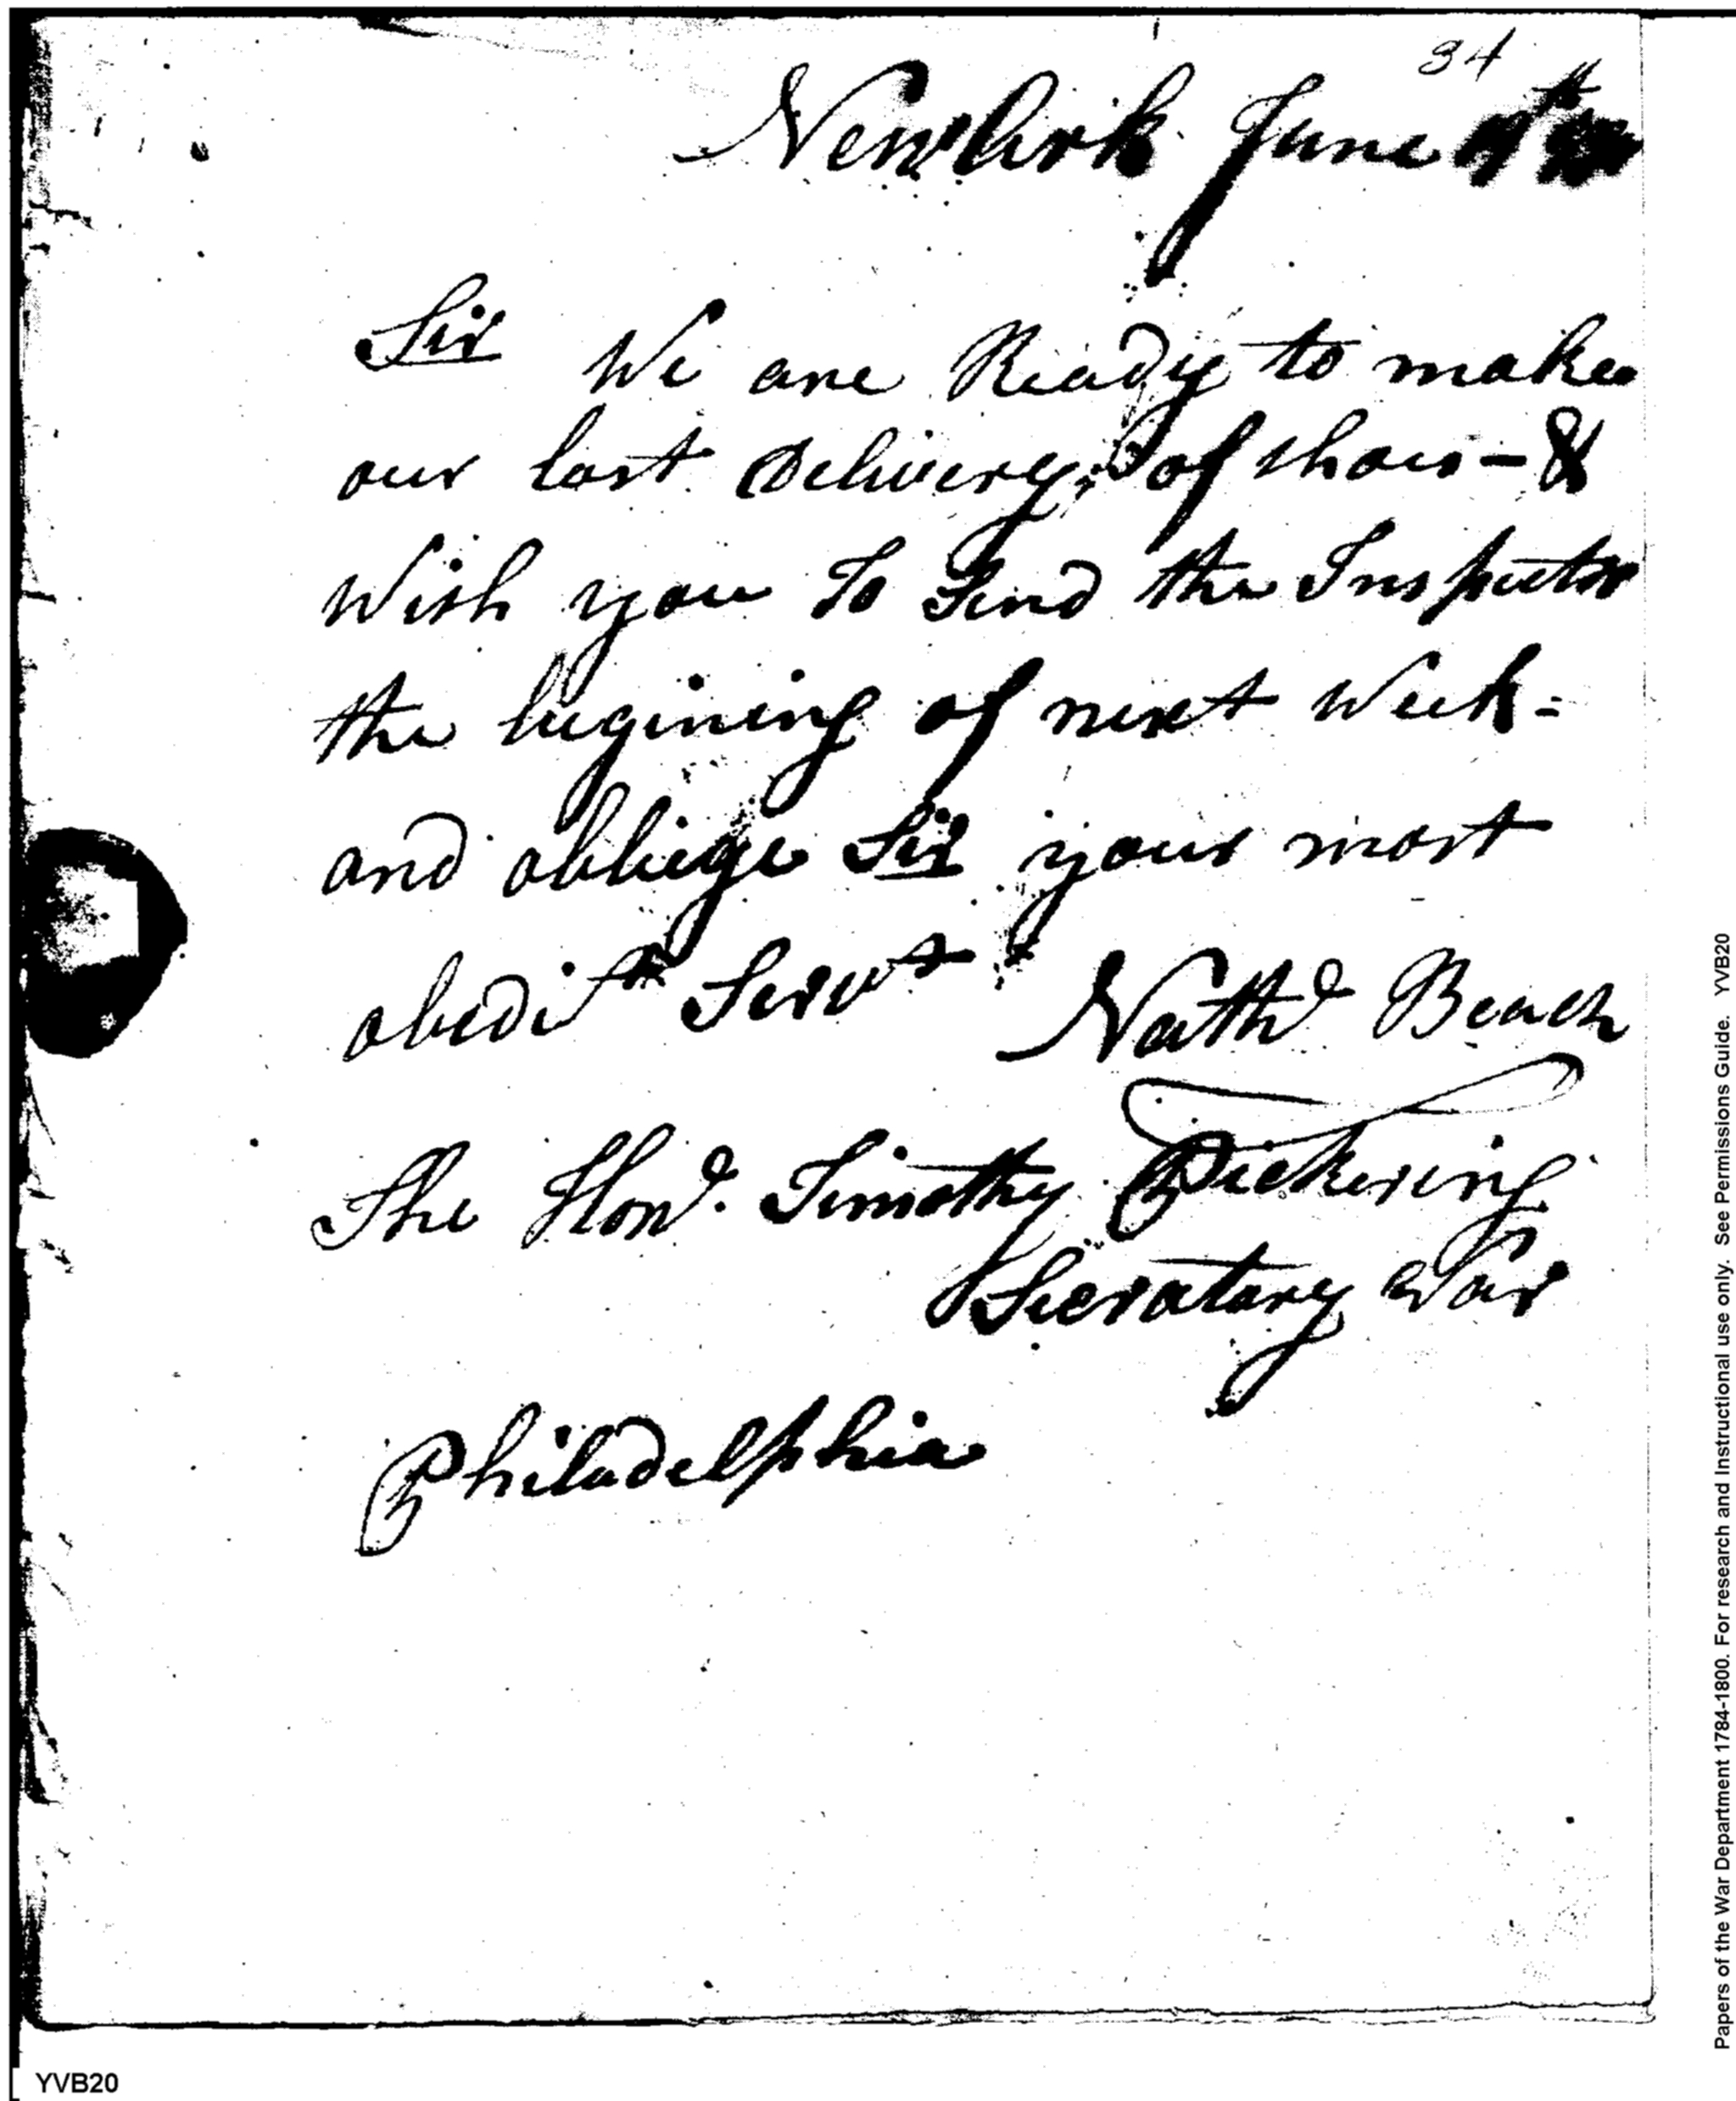 34
Newark June
Sir We are Ready to make
our last Delivery of shoes – &
Wish you To Send the Inspector
the begining of next Week =
and obliege Sir your most
obedit Servt Nathl Beach
The Hond. Timothy Pickering
Secratary War
Philadelphia
YVB20
Papers of the War Department 1784-1800. For research and Instructional use only. See Permissions Guide. YVB20